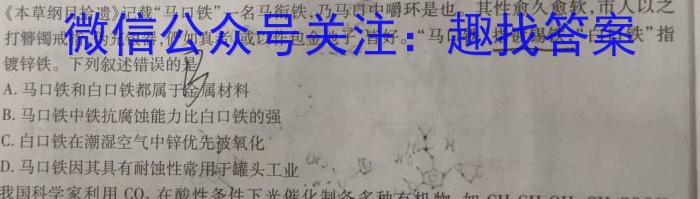 《本草纲目拾遗》记载“马口铁”一名马衔铁，乃马口中嚼环是也，其性愈久愈软，市人以之
打簪镯戒
皆好。“马口铁”指镀锡铁，“白口铁”指
微信公众号关注：趣找答案
镀锌铁。下列叙述错误的是
B
A. 马口铁和白口铁都属于金属材料
B. 马口铁中铁抗腐蚀能力比白口铁的强
C. 白口铁在潮湿空气中锌优先被氧化
D. 马口铁因其具有耐蚀性常用于罐头工业
我国科学家利用 CO₂ 在酸性条件下光催化制备多种有机物，如